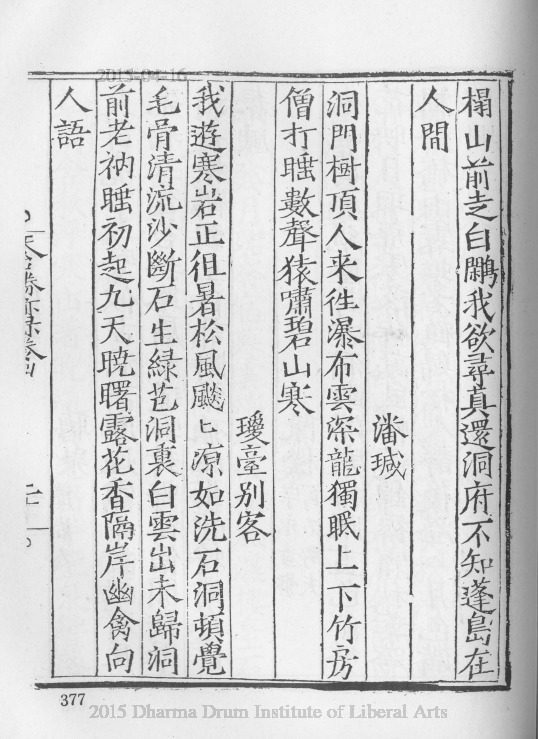 2015-04-16
榻山前走白鷴我欲尋真還洞府不知蓬島在
人間
潘珹
洞門樹頂人来徃瀑布雲深龍獨眠上下竹房
僧打睡數聲猿嘯碧山寒
璦臺别客
我遊寒岩正徂暑松風颼〻凉如洗石洞頓覺
毛骨清流沙斷石生緑苞洞裏白雲出未歸洞
前老衲睡初起九天曉曙露花香隔岸幽禽向
人語
377
2015 Dharma Drum Institute of Liberal Arts